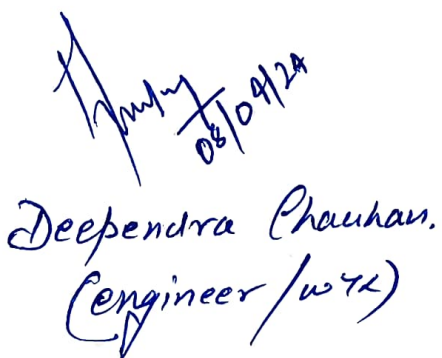 08/04/24
Deependra Chauhan.
(engineer /